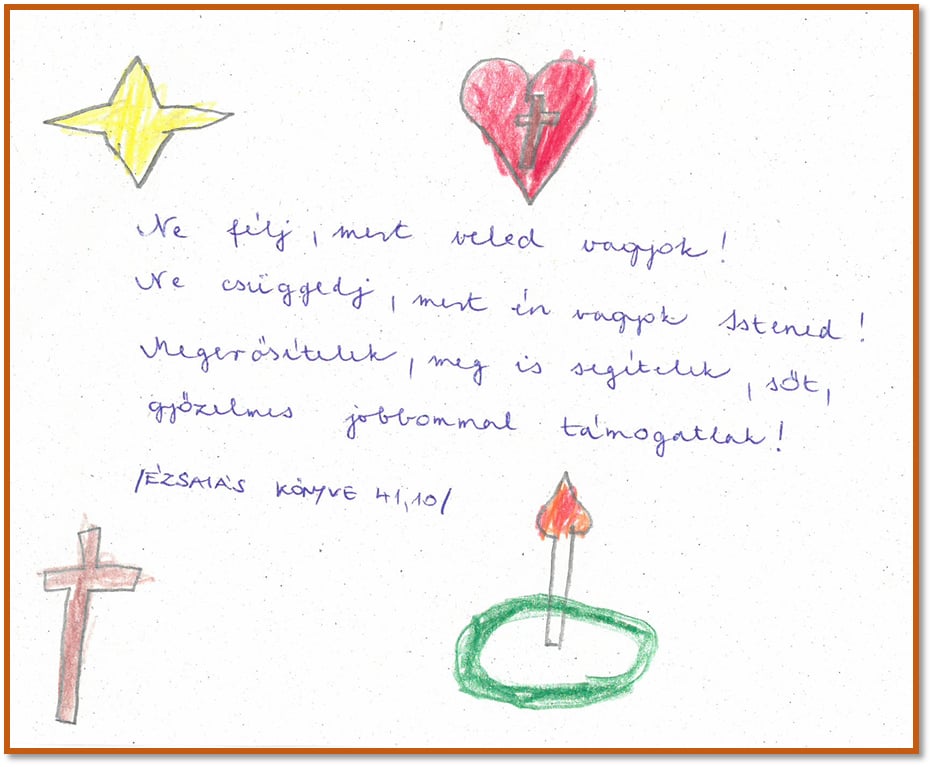 Ne félj, mert veled vagyok!
Ne csüggedj, mert én vagyok Istened!
Megerősítelek, meg is segítelek, sőt,
győzelmes jobbommal támogatlak!
/ÉZSAIÁS KÖNYVE 41,10/